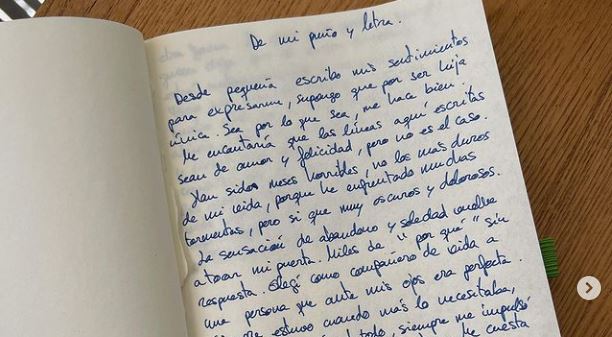 De mi puño y letra.
Desde pequeña escribo mis sentimientos
para expresarme, supongo que por ser hija
única. Sea por lo que sea, me hace bien.
Me encantaría que las líneas aquí escritas
sean de amor y felicidad, pero no es el caso.
Han sido meses horribles, no los más duros
de mi vida, porque he enfrentado muchas
tormentas, pero si que muy oscuros y dolorosos.
La sensación de abandono y soledad vuelve
a tocar mi puerta. Miles de "por qué" sin
respuesta. Elegí como compañero de vida a
una persona que ante mis ojos era perfecta.
estuvo cuando más lo necesitaba,
todo, siempre me impulsó
Me cuesta